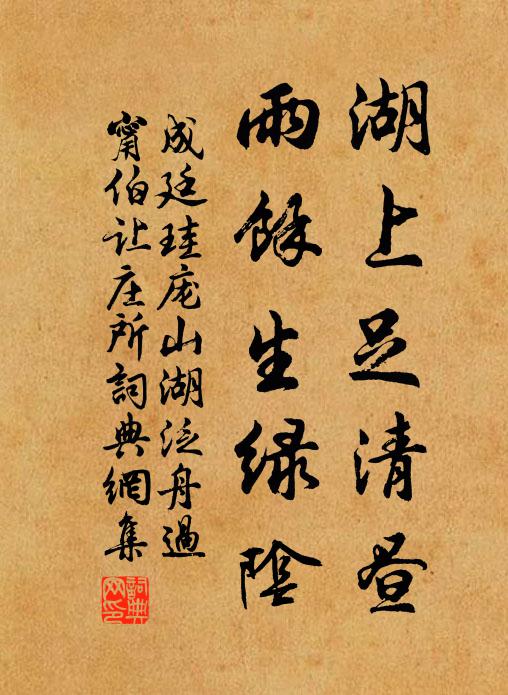 湖上足清昼
雨餘生绿陰
成廷珪庞山湖泛舟過
甯伯让庄所詞典網集
詞典網印